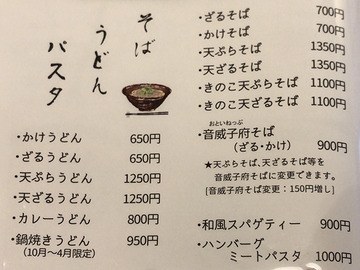 そば
うどん
パスタ
・ざるそば 700円
・かけそば 700円
・天ぷらそば 1350円
・天ざるそば 1350円
・きのこ天ぷらそば 1100円
・きのこ天ざるそば 1100円
おといねっぷ
・音威子府そば
(ざる・かけ) 900円
★天ぷらそば、天ざるそば等を
音威子府そばに変更できます。
[音威子府そば変更:150円増し]
・かけうどん 650円
・ざるうどん 650円
・天ぷらうどん 1250円
・天ざるうどん 1250円
・カレーうどん 800円
・鍋焼きうどん 950円
(10月〜4月限定)
・和風スパゲティー 900円
・ハンバーグ
ミートパスタ 1000円